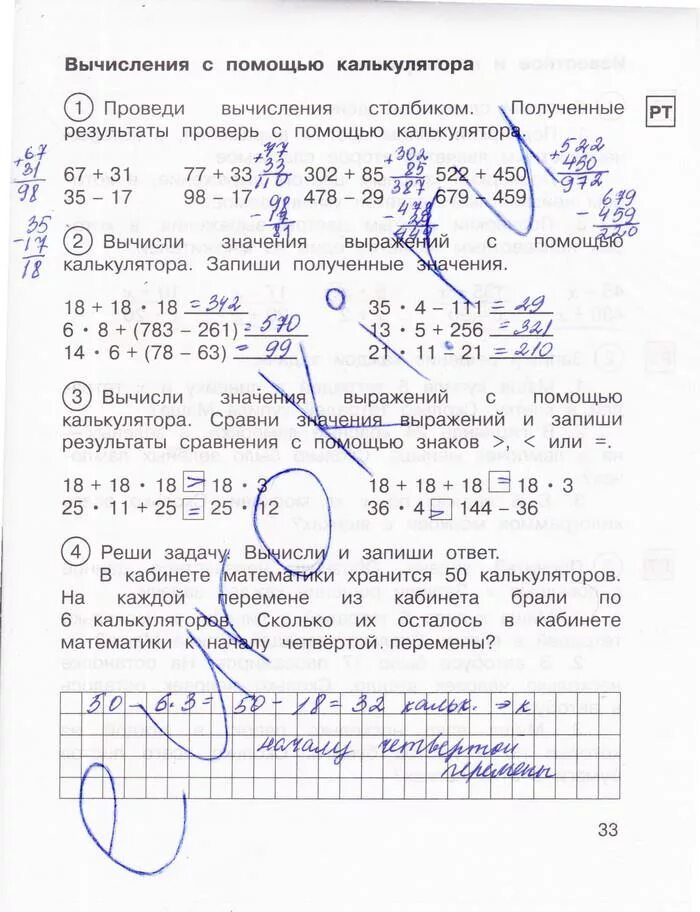 Вычисления с помощью калькулятора
1 Проведи вычисления столбиком. Полученные
результаты проверь с помощью калькулятора.
РТ
67 + 31 77 + 33 302 + 85 522 + 450
35 − 17 98 − 17 478 − 29 679 − 459
+67
31
98
+77
33
110
+302
85
387
+522
450
972
35
−17
18
98
−17
81
478
−29
449
679
−459
220
2 Вычисли значения выражений с помощью
калькулятора. Запиши полученные значения.
18 + 18 · 18 = 342 35 · 4 − 111 = 29
6 · 8 + (783 − 261) = 570 13 · 5 + 256 = 321
14 · 6 + (78 − 63) = 99 21 · 11 − 21 = 210
3 Вычисли значения выражений с помощью
калькулятора. Сравни значения выражений и запиши
результаты сравнения с помощью знаков >, < или =.
18 + 18 · 18 > 18 · 3 18 + 18 + 18 = 18 · 3
25 · 11 + 25 = 25 · 12 36 · 4 > 144 − 36
4 Реши задачу. Вычисли и запиши ответ.
В кабинете математики хранится 50 калькуляторов.
На каждой перемене из кабинета брали по
6 калькуляторов. Сколько их осталось в кабинете
математики к началу четвёртой. перемены?
50 − 6·3 = 50 − 18 = 32 кальк. ⇒ к
началу четвертой
перемены
33